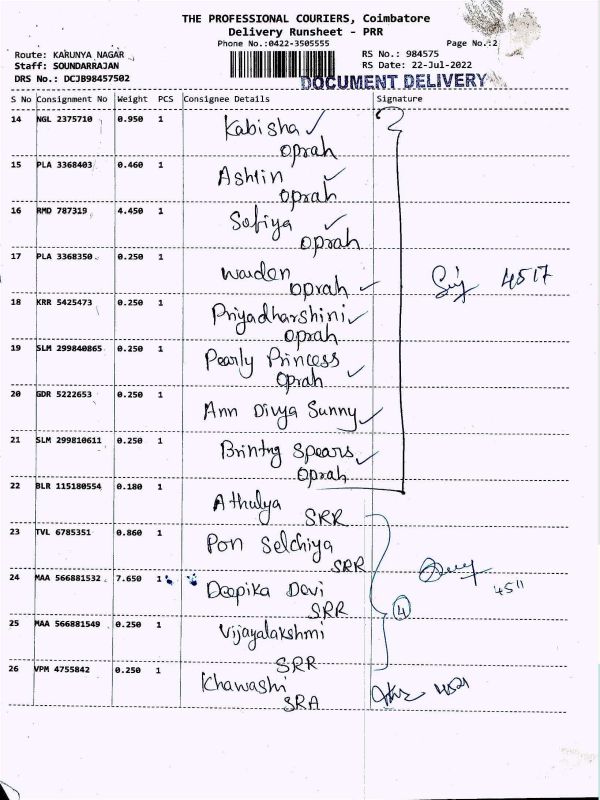 THE PROFESSIONAL COURIERS, Coimbatore
Delivery Runsheet - PRR
Phone No.:0422-3505555 Page No.:2
Route: KARUNYA NAGAR RS No.: 984575
Staff: SOUNDARRAJAN RS Date: 22-Jul-2022
DRS No.: DCJB98457502 DOCUMENT DELIVERY
S No Consignment No Weight PCS Consignee Details Signature
14 NGL 2375710 0.950 1 Kabisha
Oprah
15 PLA 3368403 0.460 1 Ashlin
Oprah
16 RMD 787319 4.450 1 Sofiya
Oprah
17 PLA 3368350 0.250 1 Waiden
Oprah 4517
18 KRR 5425473 0.250 1 Priyadharshini
Oprah
19 SLM 299840865 0.250 1 Pearly Princess
Oprah
20 GDR 5222653 0.250 1 Ann Divya Sunny
21 SLM 299810611 0.250 1 Brintny Spears
Oprah
22 BLR 115180554 0.180 1 Athulya
SRR
23 TVL 6785351 0.860 1 Pon Selchiya
SRR
24 MAA 566881532 7.650 1 Deepika Devi 4511
SRR 4
25 MAA 566881549 0.250 1 Vijayalakshmi
SRR
26 VPM 4755842 0.250 1 Khawashi
SRA